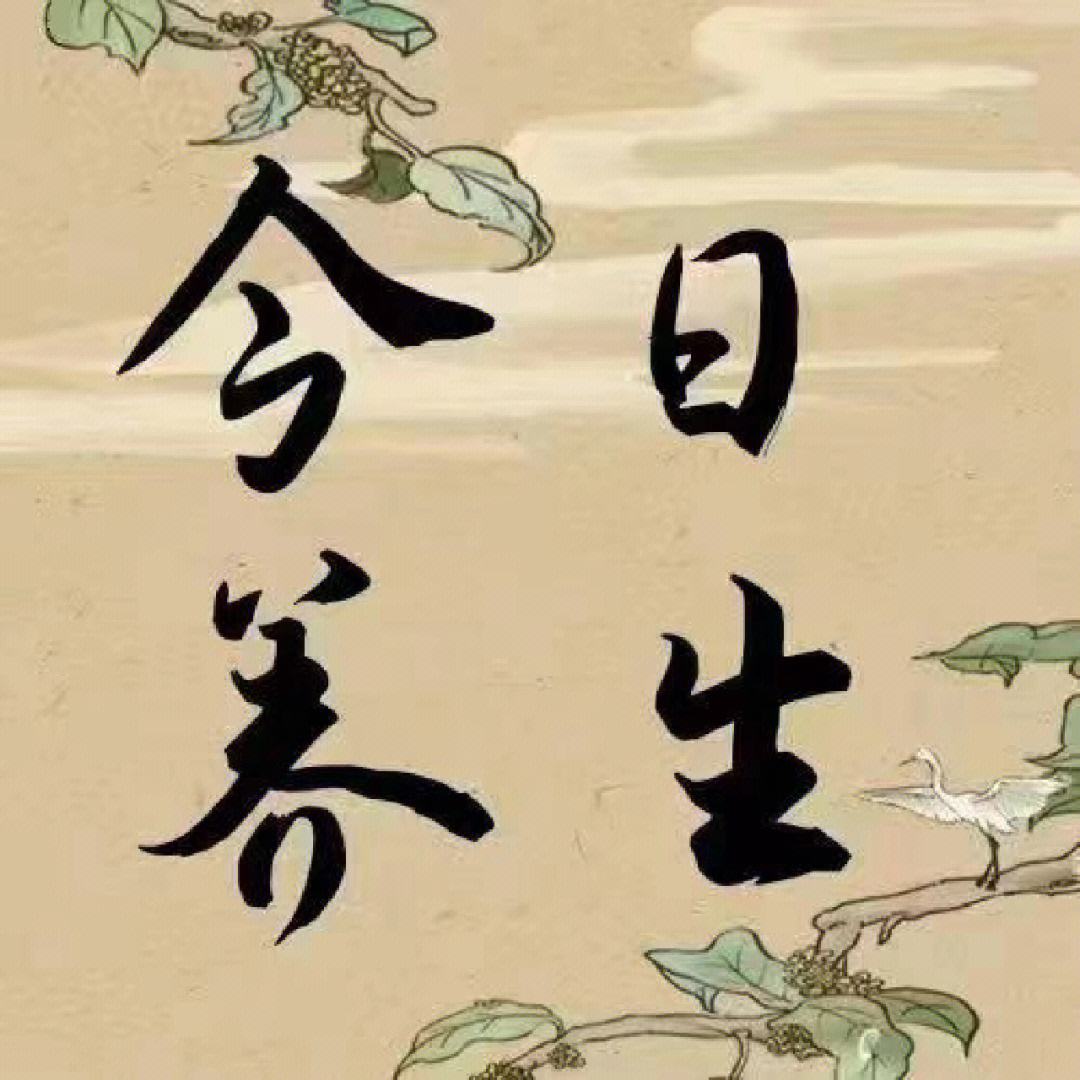 今日
养生